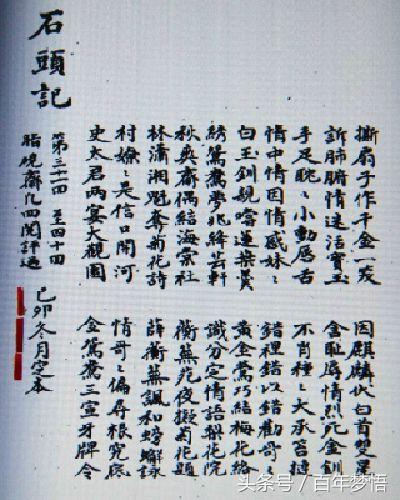 撕扇子作千金一笑 因麒麟伏白首雙星
訴肺腑情迷活寶玉 含恥辱情烈死金釧
手足眈〻小動唇舌 不肖種〻大承笞撻
情中情因情感妹〻 錯裡錯以錯勸哥〻
白玉釧親嚐蓮葉羹 黃金鶯巧結梅花絡
綉鴛鴦夢兆絳芸軒 識分定情語梨花院
秋爽齋偶結海棠社 蘅蕪苑夜擬菊花題
林瀟湘魁奪菊花詩 薛蘅蕪諷和螃蟹詠
村嫽〻是信口開河 情哥〻偏尋根究底
史太君兩宴大觀園 金鴛鴦三宣牙牌令
第三十一回 至四十回
脂硯齋凡四閱評過 己卯冬月定本
石頭記
头条号/百年梦悟